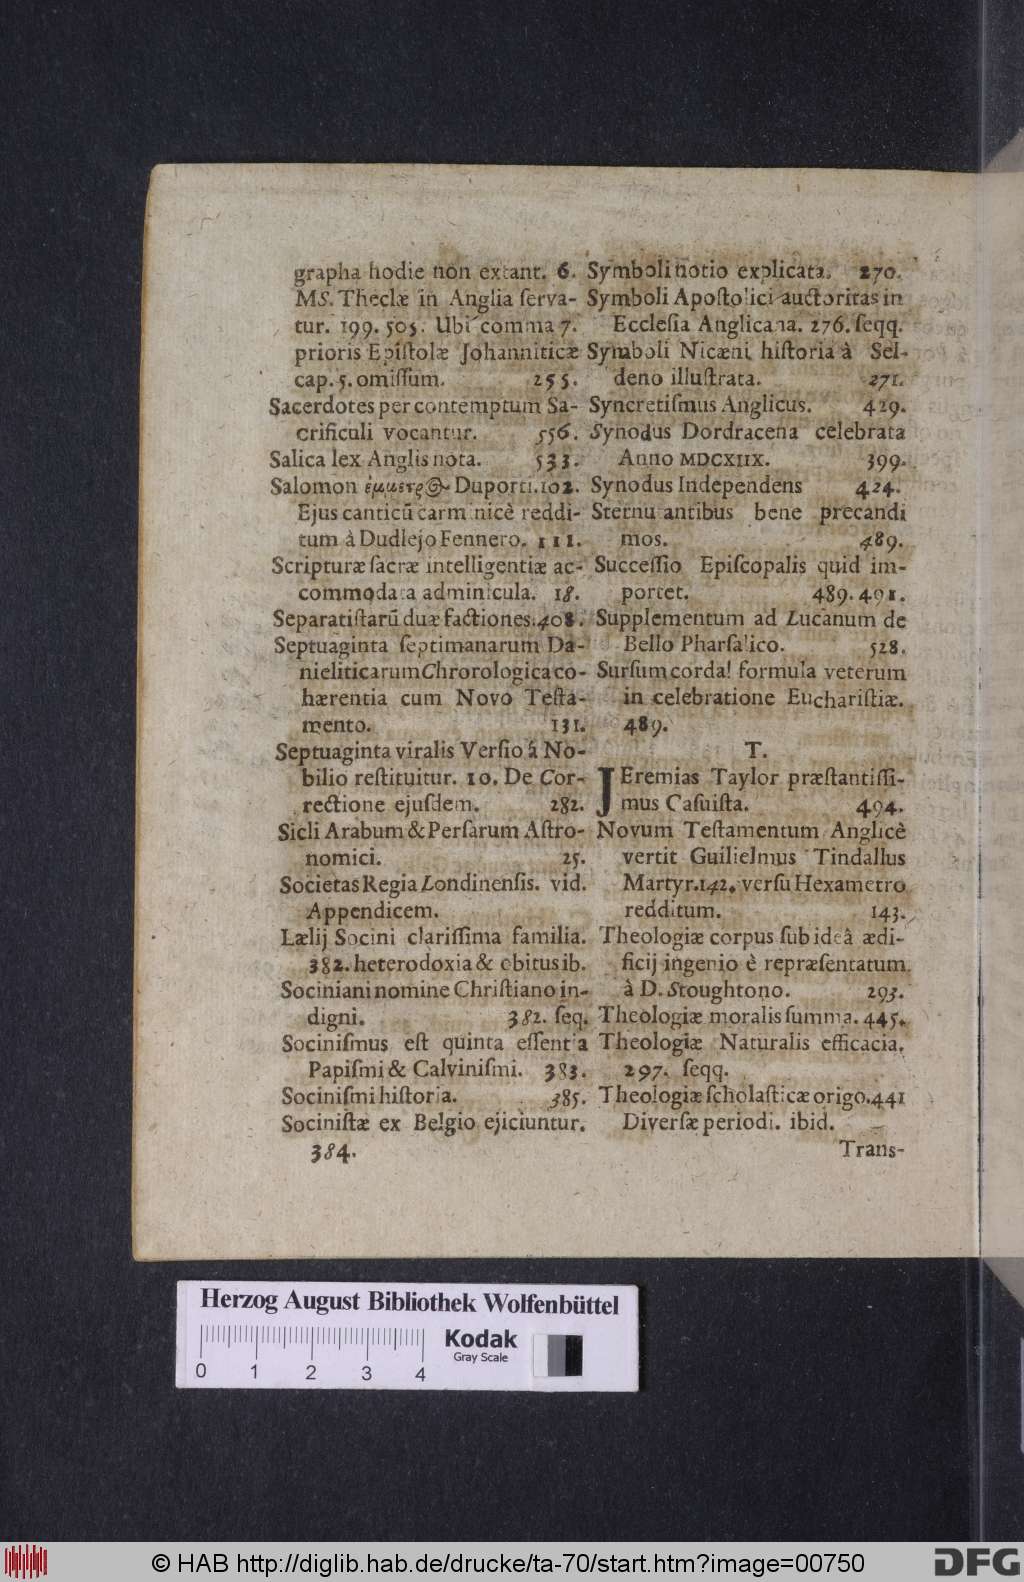 grapha hodie non extant. 6.
MS. Theclæ in Anglia ſerva-
tur. 199. 505. Ubi comma 7.
prioris Epiſtolæ Johanniticæ
cap. 5. omiſſum. 255.
Sacerdotes per contemptum Sa-
crificuli vocantur. 556.
Salica lex Anglis nota. 533.
Salomon Duporti. 102.
Ejus canticū carminicè reddi-
tum à Dudlejo Fennero. 111.
Scripturæ ſacræ intelligentiæ ac-
commodata adminicula. 18.
Separatiſtarū duæ factiones. 408.
Septuaginta ſeptimanarum Da-
nieliticarum Chrorologica co-
hærentia cum Novo Teſta-
mento. 131.
Septuaginta viralis Verſio à No-
bilio reſtituitur. 10. De Cor-
rectione ejuſdem. 282.
Sicli Arabum & Perſarum Aſtro-
nomici. 25.
Societas Regia Londinenſis. vid.
Appendicem.
Lælij Socini clariſſima familia.
382. heterodoxia & obitus ib.
Sociniani nomine Chriſtiano in-
digni. 382. ſeq.
Sociniſmus eſt quinta eſſentia
Papiſmi & Calviniſmi. 383.
Sociniſmi hiſtoria. 385.
Sociniſtæ ex Belgio ejiciuntur.
384.
Symboli notio explicata. 270.
Symboli Apoſtolici auctoritas in
Eccleſia Anglicana. 276. ſeqq.
Symboli Nicæni hiſtoria à Sel-
deno illuſtrata. 271.
Syncretiſmus Anglicus. 429.
Synodus Dordracena celebrata
Anno MDCXIIX. 399.
Synodus Independens 424.
Sternutantibus bene precandi
mos. 489.
Succeſſio Epiſcopalis quid im-
portet. 489. 491.
Supplementum ad Lucanum de
Bello Pharſalico. 528.
Surſum corda! formula veterum
in celebratione Euchariſtiæ.
489.
T.
JEremias Taylor præſtantiſſi-
mus Caſuiſta. 494.
Novum Teſtamentum Anglicè
vertit Guilielmus Tindallus
Martyr. 142. verſu Hexametro
redditum. 143.
Theologiæ corpus ſub ideâ ædi-
ficij ingenio è repræſentatum
à D. Stoughtono. 293.
Theologiæ moralis ſumma. 445.
Theologiæ Naturalis efficacia.
297. ſeqq.
Theologiæ ſcholaſticæ origo. 441
Diverſæ periodi. ibid.
Trans-
Herzog August Bibliothek Wolfenbüttel
Kodak
Gray Scale
0 1 2 3 4
© HAB http://diglib.hab.de/drucke/ta-70/start.htm?image=00750
DFG